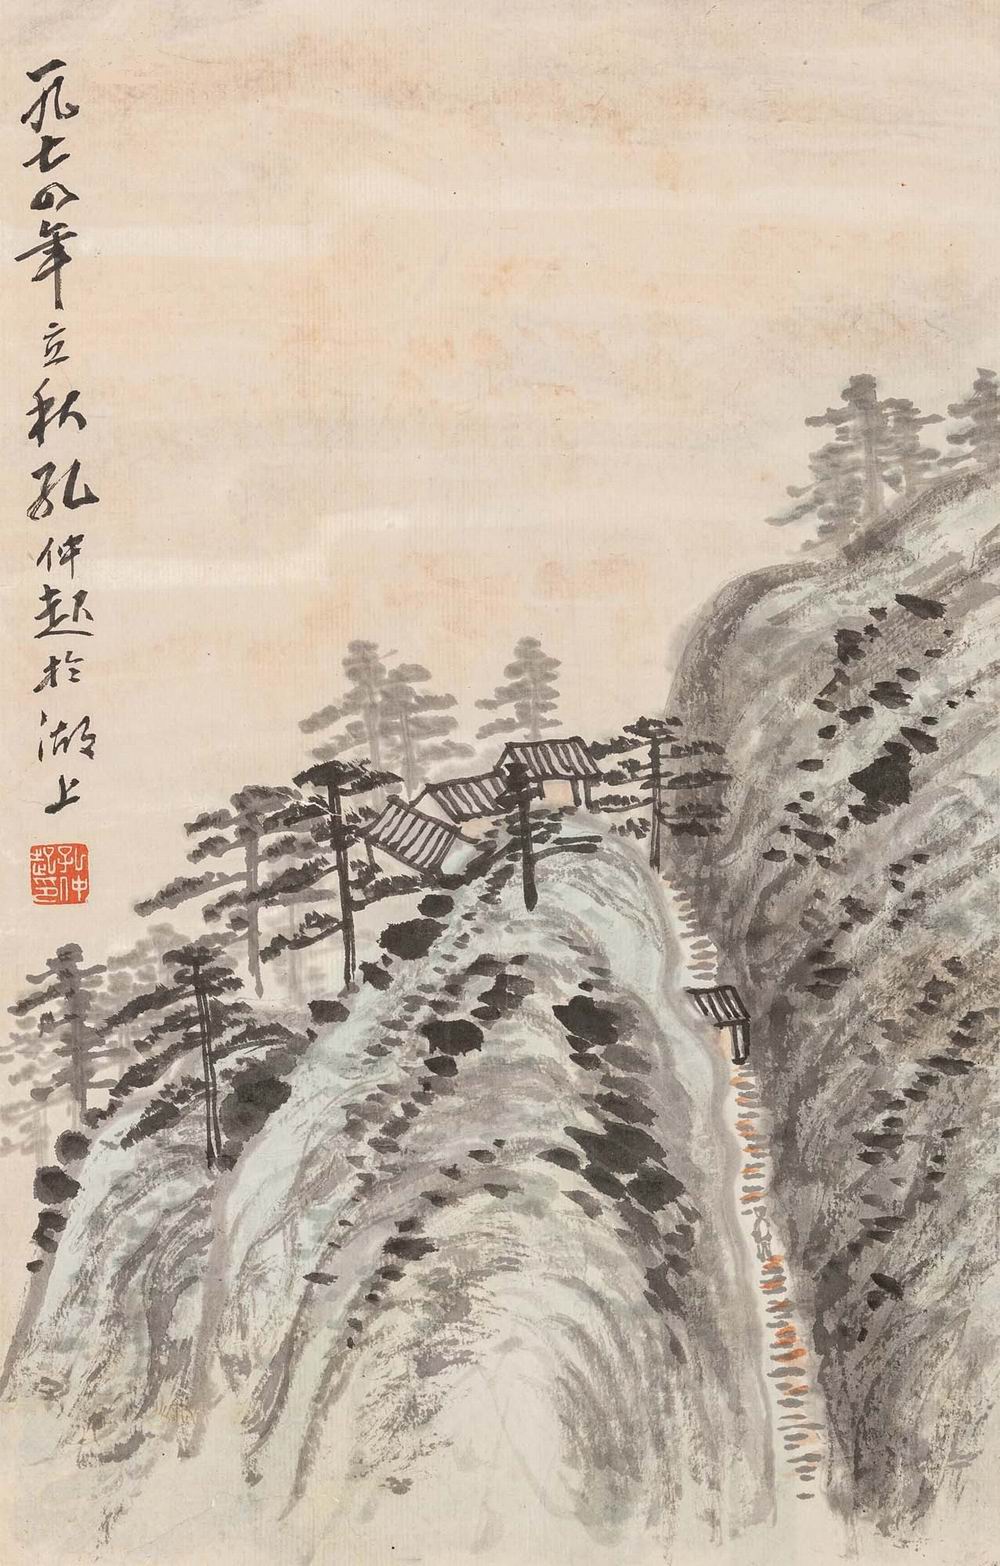 一九七四年立秋孔仲起於湖上
孔仲起印